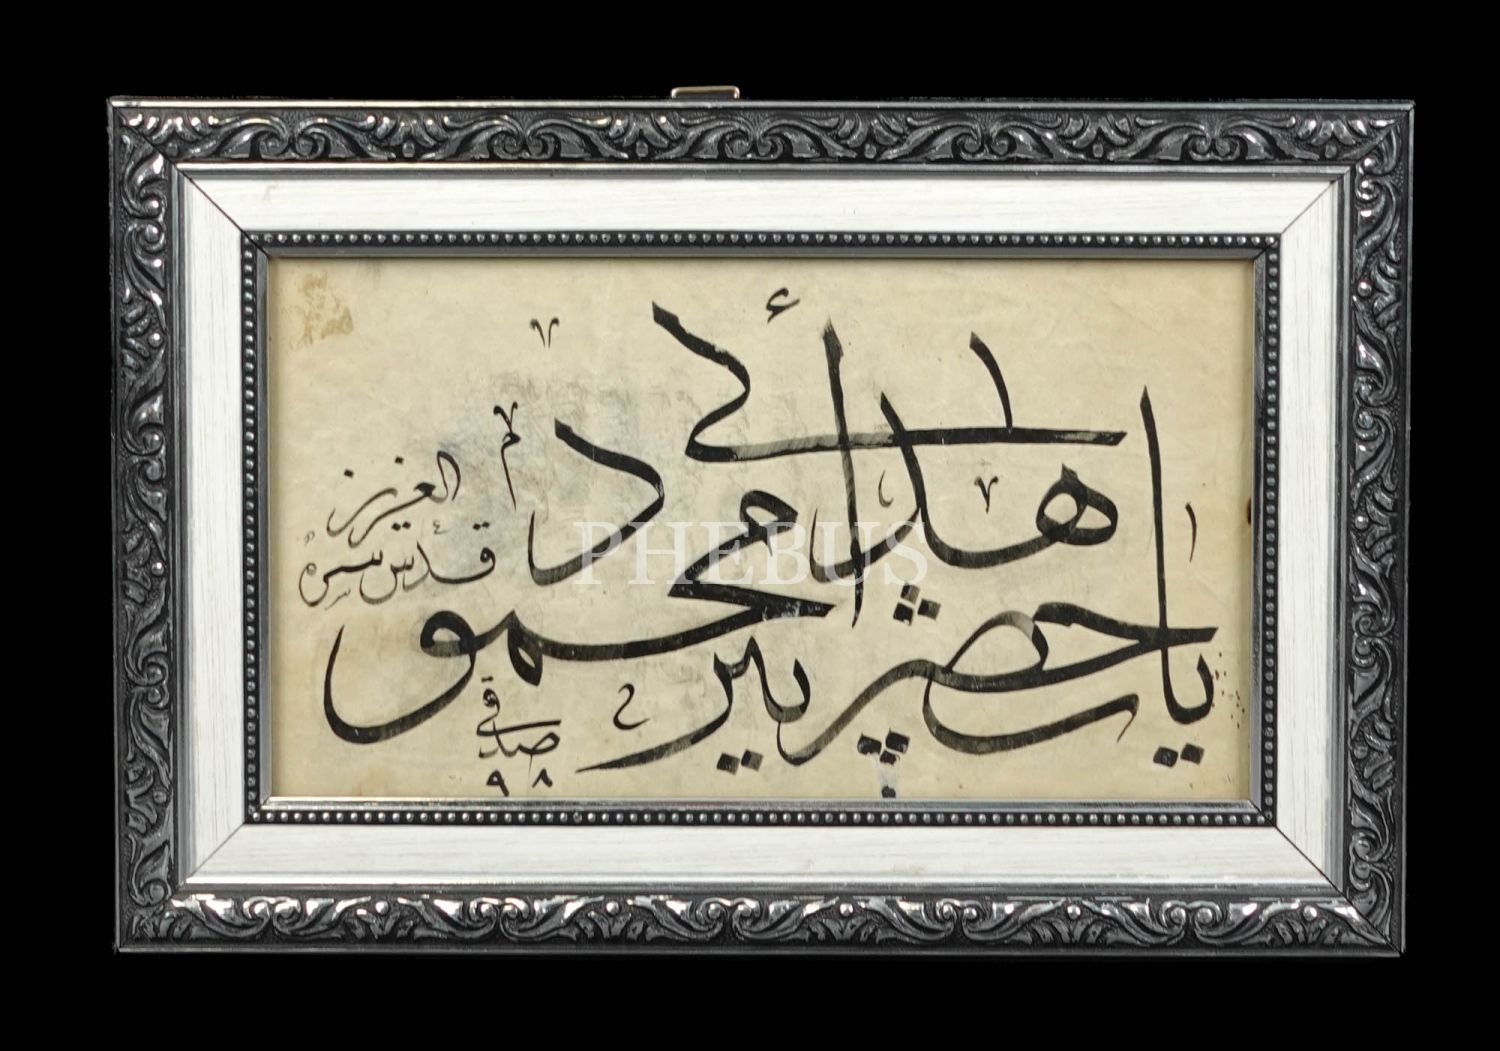 يا حضرت پير
محمود هدائي
قدس سره
العزيز
صدقي
٩٨
PHEBUS